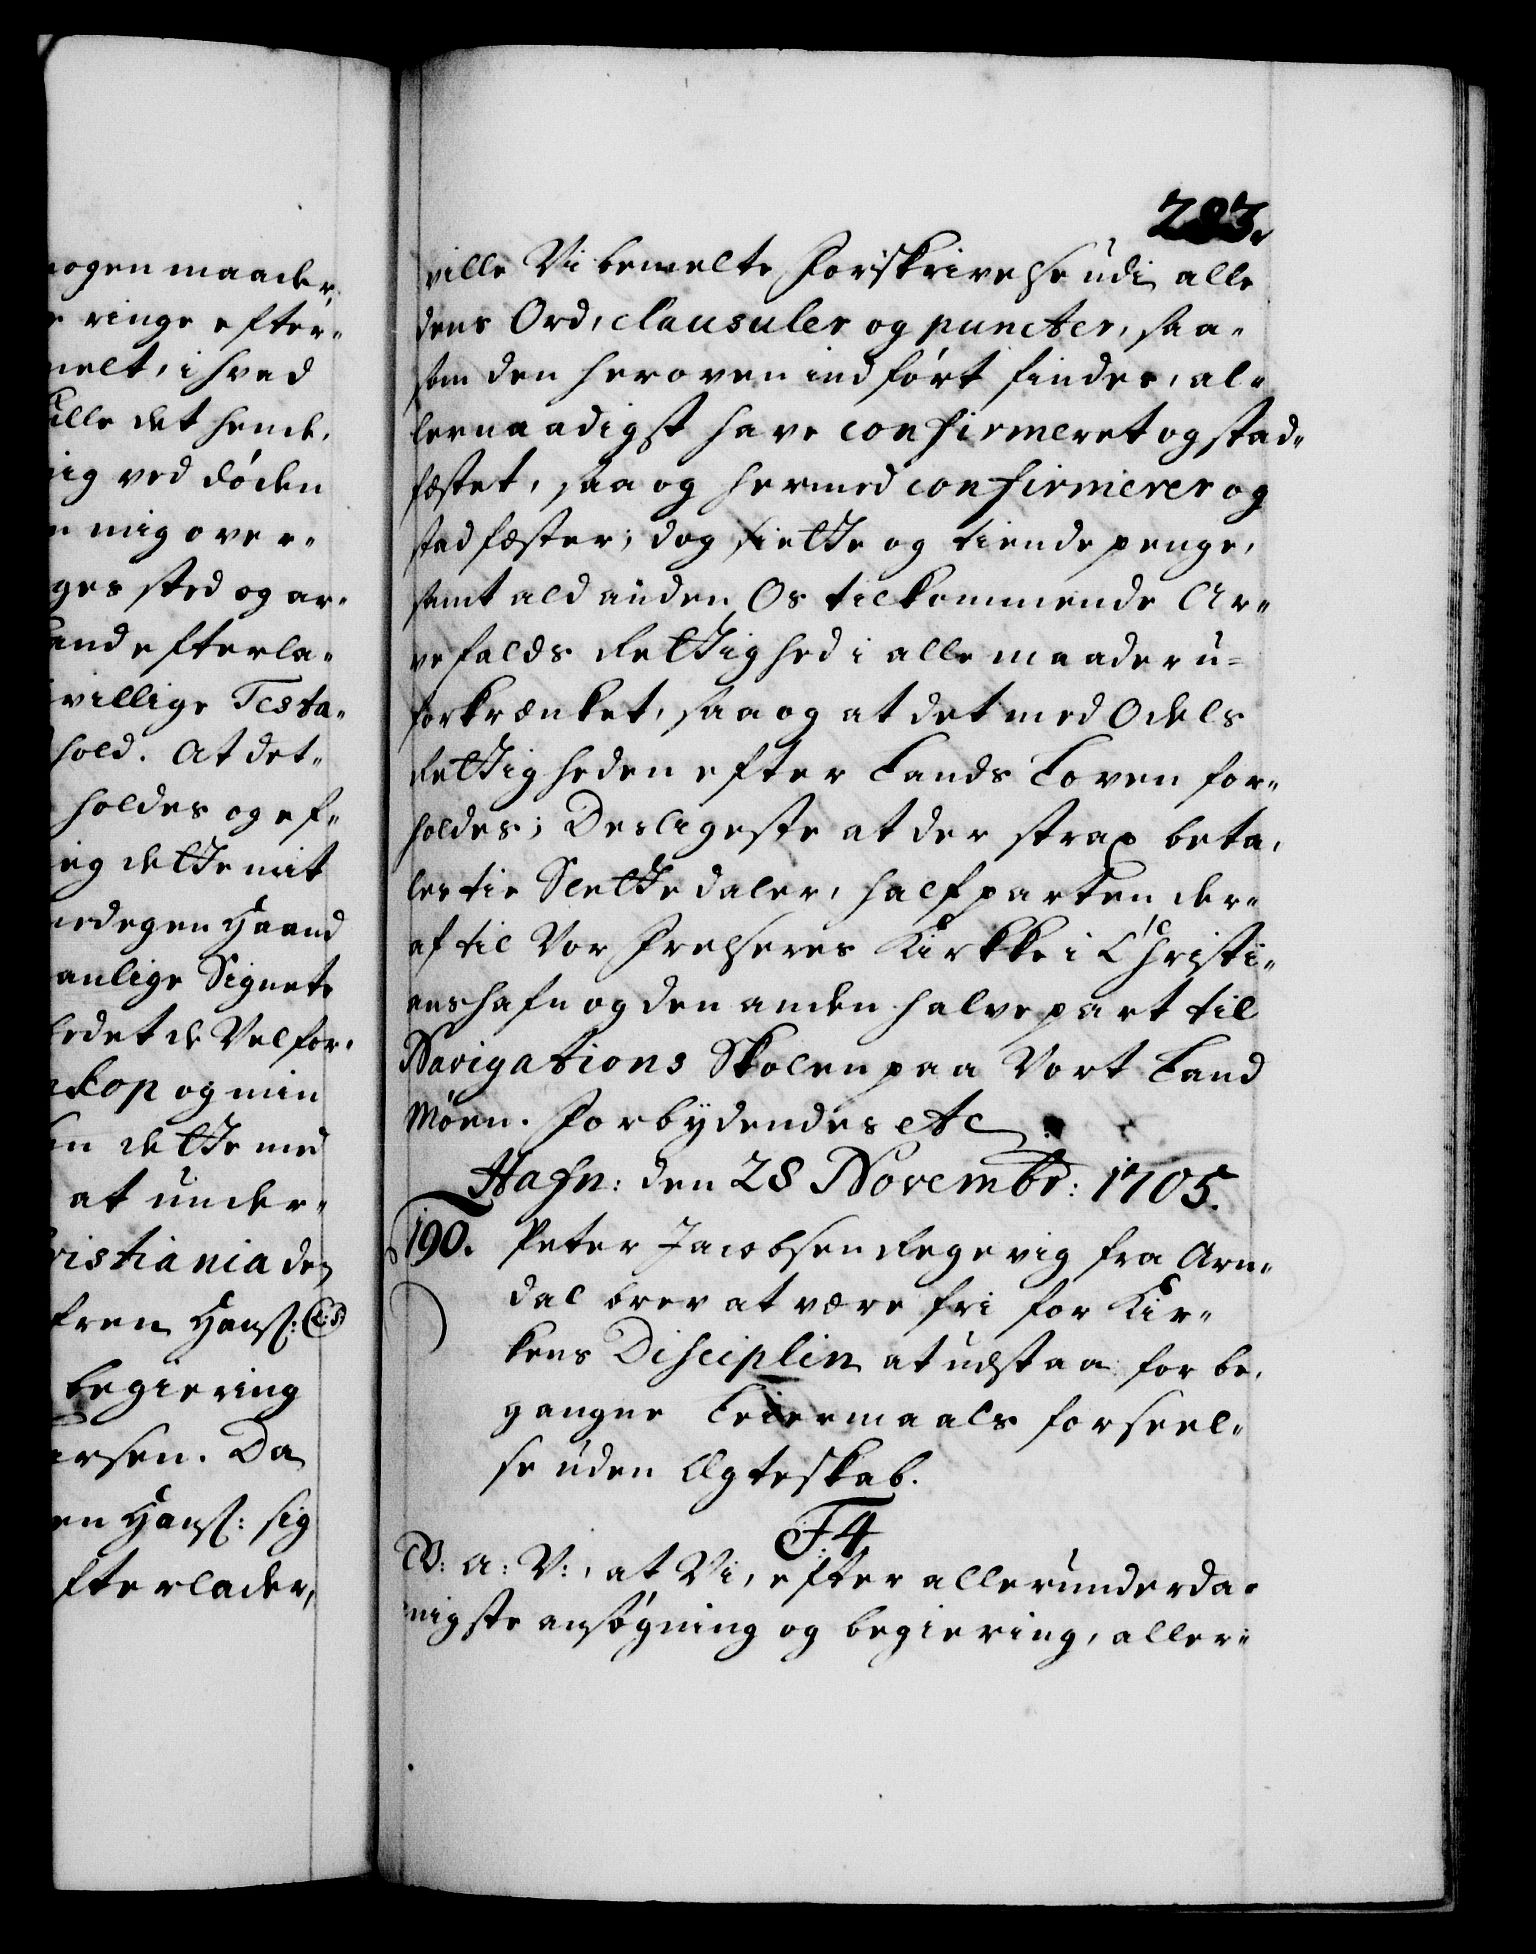 nogen maader,
ringe efter-
melt, i hvad
ville det hende,
mig ved døden
mig over-
ges sted og ar-
efterla-
villige Testa-
hold. At det-
holdes og ef-
jeg dette mit
med egen Haand
Signete
Velfor-
og min
dette med
at under-
Christiania den
Hanß: (L:S)
begiering
Da
Hanß: sig
efterlader,
283.
ville Vi bemelte Forskrivelse udi alle
dens Ord, clausuler og puncter, saa-
som den heroven indført findes, al-
lernaadigst have confirmeret og stad-
fæstet, saa og hermed confirmerer og
stadfæster; dog siette og tiende penge,
samt ald anden Os tilkommende Ar-
vefalds Rettighed i alle maader u-
forkrænket, saa og at det med Odels
Rettigheden efter Lands Loven for-
holdes; Desligeste at der strax beta-
les tie Slettedaler, halfparten der-
af til Vor Frelseres Kirkke i Christi-
anshafn og den anden halvepart til
Navigations Skolen paa Vort Land
Møen. Forbydendes etc.
Hafn: den 28 Novembr: 1705.
190. Peter Jacobsen Regevig fra Arn-
dal brev at være fri for Kir-
kens Disciplin at udstaa for be-
gangne Leiermaals forseel-
se uden Ægteskab.
F4
G: A: V:, at Vi, efter allerunderda-
nigste ansøgning og begiering, aller-